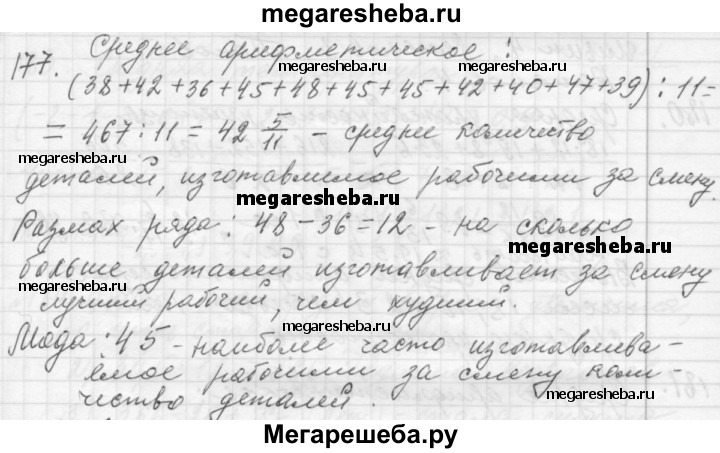 megaresheba.ru
177. Среднее арифметическое:
megaresheba.ru megaresheba.ru
(38+42+36+45+48+45+45+42+40+47+39) : 11=
= 467:11 = 42 5/11 – среднее количество
megaresheba.ru megaresheba.ru
деталей, изготавлимое рабочими за смену.
megaresheba.ru
Размах ряда: 48-36=12 - на сколько
megaresheba.ru
больше деталей изготавливает за смену
megaresheba.ru
лучший рабочий, чем худший.
megaresheba.ru
Мода: 45 - наиболее часто изготавлива-
емое рабочими за смену коли-
megaresheba.ru megaresheba.ru
чество деталей.
Мегарешеба.ру